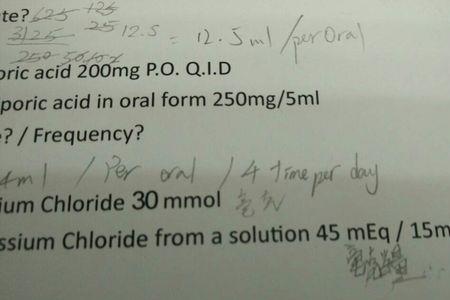 te? 625 125
3125 25 12.5 = 12.5ml / per oral
250
oric acid 200mg P.O. Q.I.D
poric acid in oral form 250mg/5ml
? / Frequency?
4ml / Per oral / 4 time per day
ium Chloride 30 mmol 毫
ssium Chloride from a solution 45 mEq / 15m
毫克當量